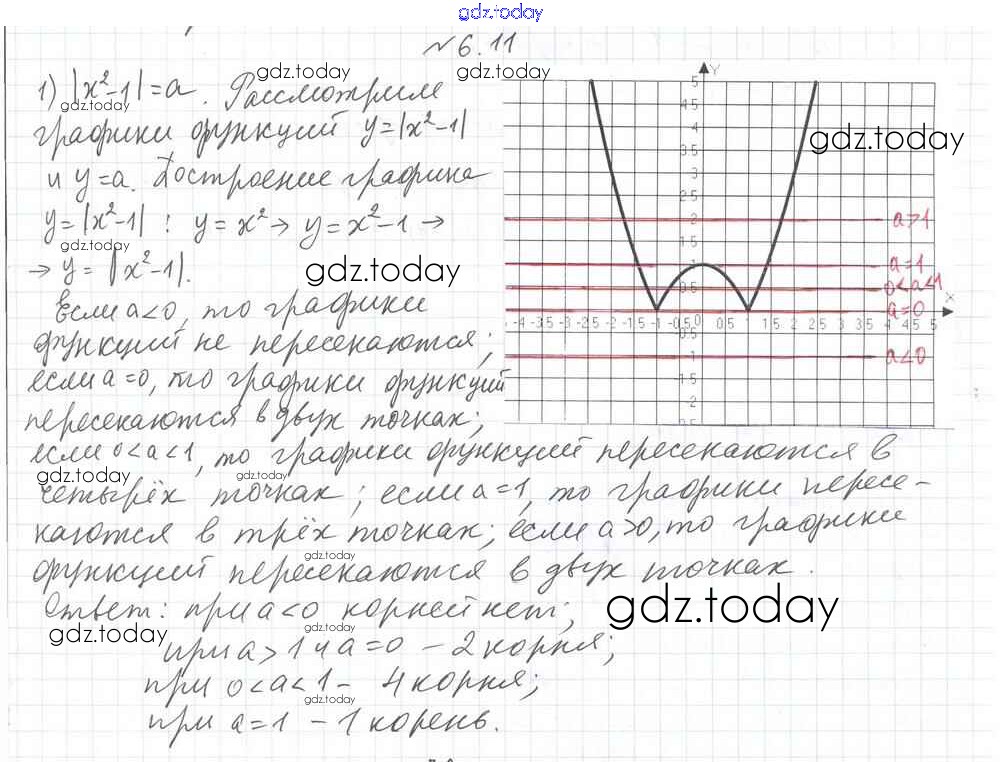 gdz.today
№ 6.11
1) |x²-1|=a. Рассмотрим
gdz.today
gdz.today
gdz.today
графики функций y=|x²-1|
и y=a. Построение графика
y=|x²-1| : y=x² → y=x²-1 →
gdz.today
→ y=|x²-1|.
gdz.today
Если a<0, то графики
функций не пересекаются;
если a=0, то графики функций
пересекаются в двух точках;
если 0<a<1, то графики функций пересекаются в
gdz.today
gdz.today
четырёх точках; если a=1, то графики пересе-
каются в трёх точках; если a>0, то графики
gdz.today
функций пересекаются в двух точках.
Ответ: при a<0 корней нет;
gdz.today
gdz.today
gdz.today
при a>1 и a=0 - 2 корня;
при 0<a<1 - 4 корня;
gdz.today
при a=1 - 1 корень.
Y
gdz.today
5
4.5
3.5
3
2.5
2
a>1
1.5
1
a=1
0.5
0<a<1
X
a=0
-4 -3.5 -3 -2.5 -2 -1.5 -1 -0.5 0 0.5 1 1.5 2 2.5 3 3.5 4 4.5 5
-0.5
a<0
-1.5
-2